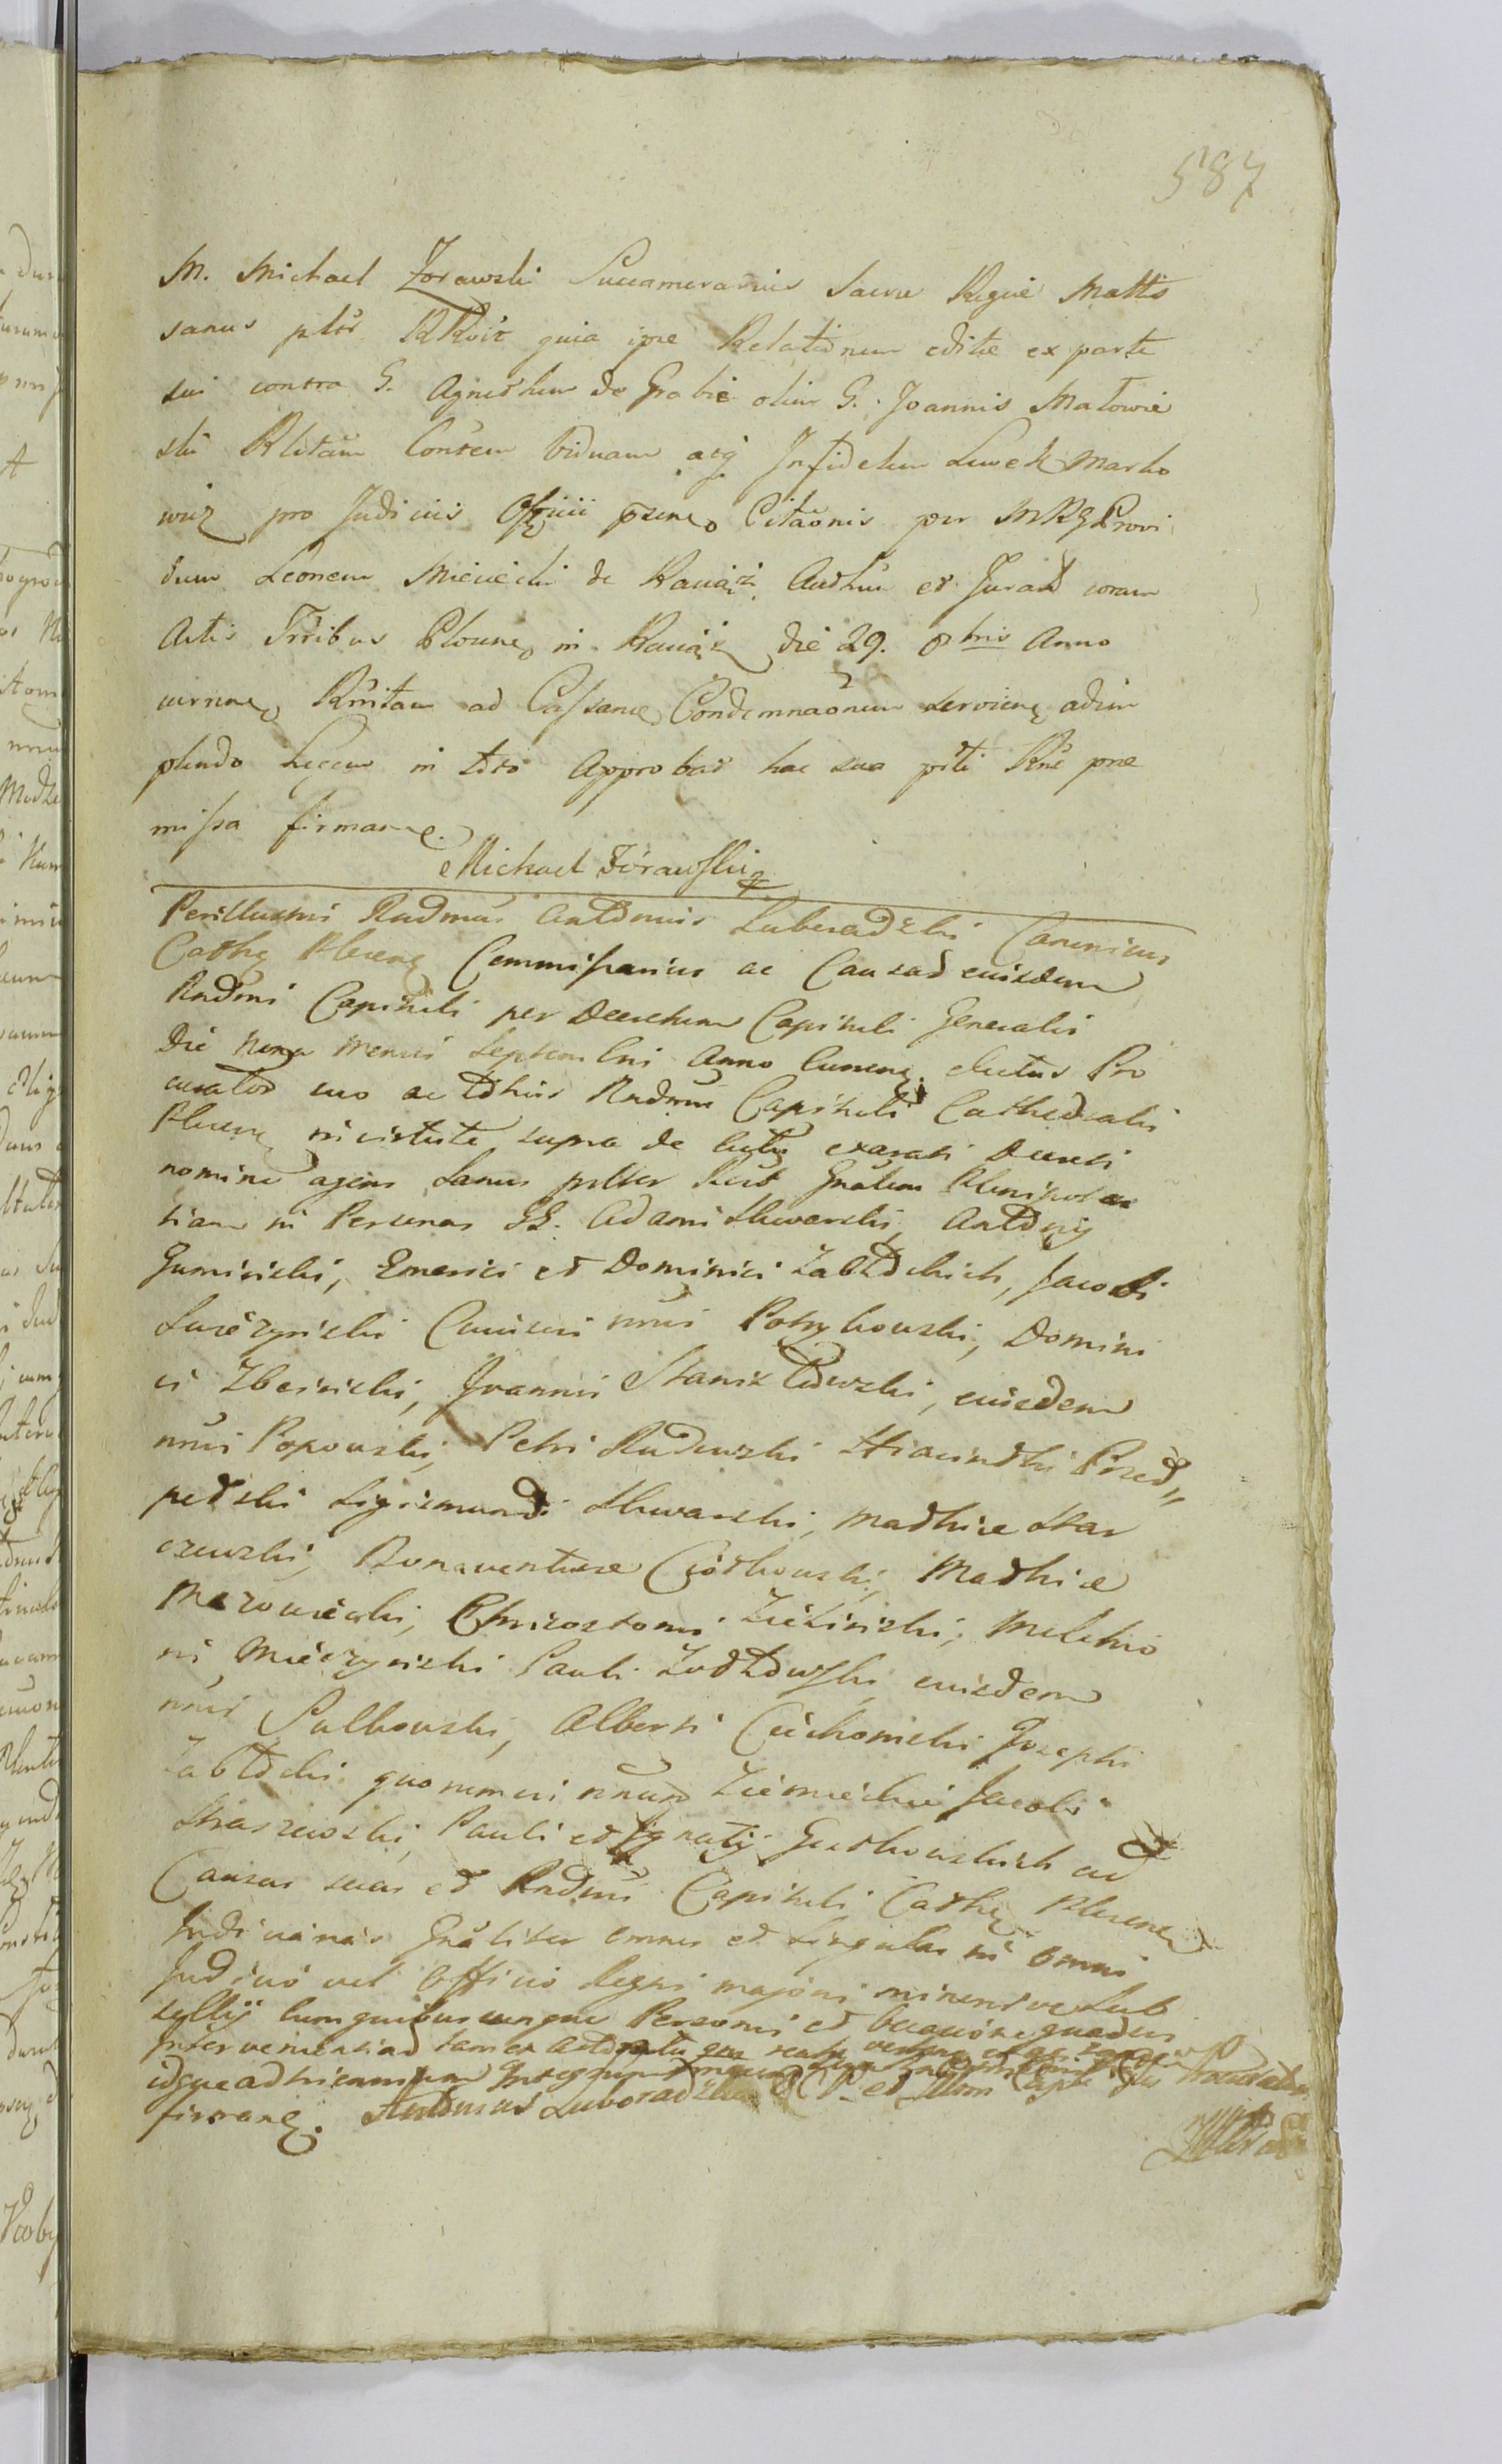 587
M. Michael Zorawski Succamerarius Sacrae Regiae Mattis
sanus ptbr RRcit quia ipse Relationem editae ex parte
sui contra G. Agnethem de Grabie olim G. Joannis Małowie
ski Rlitam Consem Viduam atq Infidelem Lewek Marko
wicz pro Judiciis Officii psene Citaonis per MRG Provi
dum Leonem Mieiecki de Raciąż Authm et Jurat coram
Actis Trribus Plocsne in Raciąż die 29. 8bris Anno
currene Rmitam ad Cassane Condemnaonem serviene adim
plendo Legem in toto Approbat hac sua pnti Rne prae
missa firmane.
Michael Żórawski
Perillustris Rndmus Antonius Luboradzki Canonicus
Cathe Plocene Commissarius ac Causar eiusdem
Rndmi Capituli per Decretum Capituli Generalis
Die Nona Mensis Septembris Anno Currene electus Pro
curator suo ac tothius Rndmi Capituli Cathedralis
Plocene in virtute supra de actu exarati Decreti
nomine agens Sanus ptter Rcit Gnalem Plenipoten
tiam in Personas GG. Adami Skwarski, Antonij
Guminski, Emerici et Dominici Zabłockich, Jacobi
Su Cuiusvi nnis Potrykowski, Domini
ci Zbeinski, Joannis Stanisławski, eiusdem
nnis Popowski, Petri Rudowski Hiacinthi Przed„
pełski Sigismundi Skwarski, Mathiae Skar
czewski, Bonaventurae Ciołkowski, Mathiae
Mazowiecki, Chrizostomi Zieliński, Melchio
ris Mieczynski Pauli Żołtowski eiusdem
nnis Sulkowski, Alberti Ciechomski Josephi
Zabłocki quorumvis nnum Ziemieckie Jacobi
Straszewski, Pauli et Ignatij Gutkowskich ad
Causas suas et Rndmi Capituli Cathe Plocene
Judiciarias Gnaliter omnes et Singulas in omni
Judicio vel Officio Regni majori minorive Sub
sellij cum quibuscunque Personis et occasione quadvis
intervenientiad tam ex
idque ad
firmane. Antonius Luboradzki C P et Illmi Capli